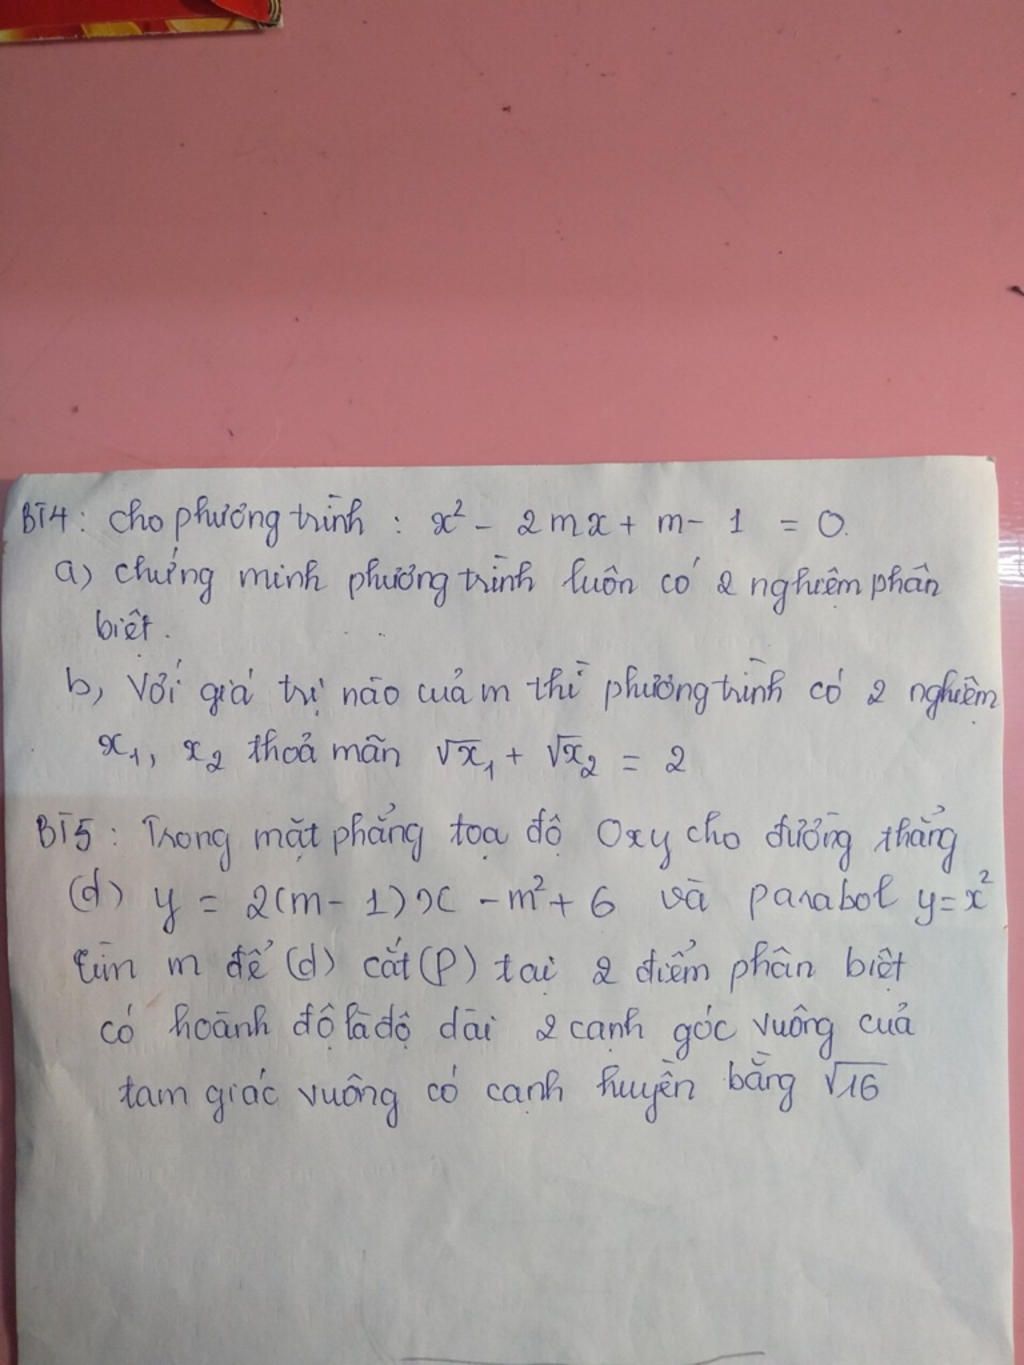 BT4: Cho phương trình : x² - 2mx + m - 1 = 0.
a) chứng minh phương trình luôn có 2 nghiệm phân
biệt.
b, Với giá trị nào của m thì phương trình có 2 nghiệm
x₁, x₂ thoả mãn √x₁ + √x₂ = 2
BT5: Trong mặt phẳng toạ độ Oxy cho đường thẳng
(d) y = 2(m - 1)x - m² + 6 và parabol y = x²
tìm m để (d) cắt (P) tại 2 điểm phân biệt
có hoành độ là độ dài 2 cạnh góc vuông của
tam giác vuông có cạnh huyền bằng √16